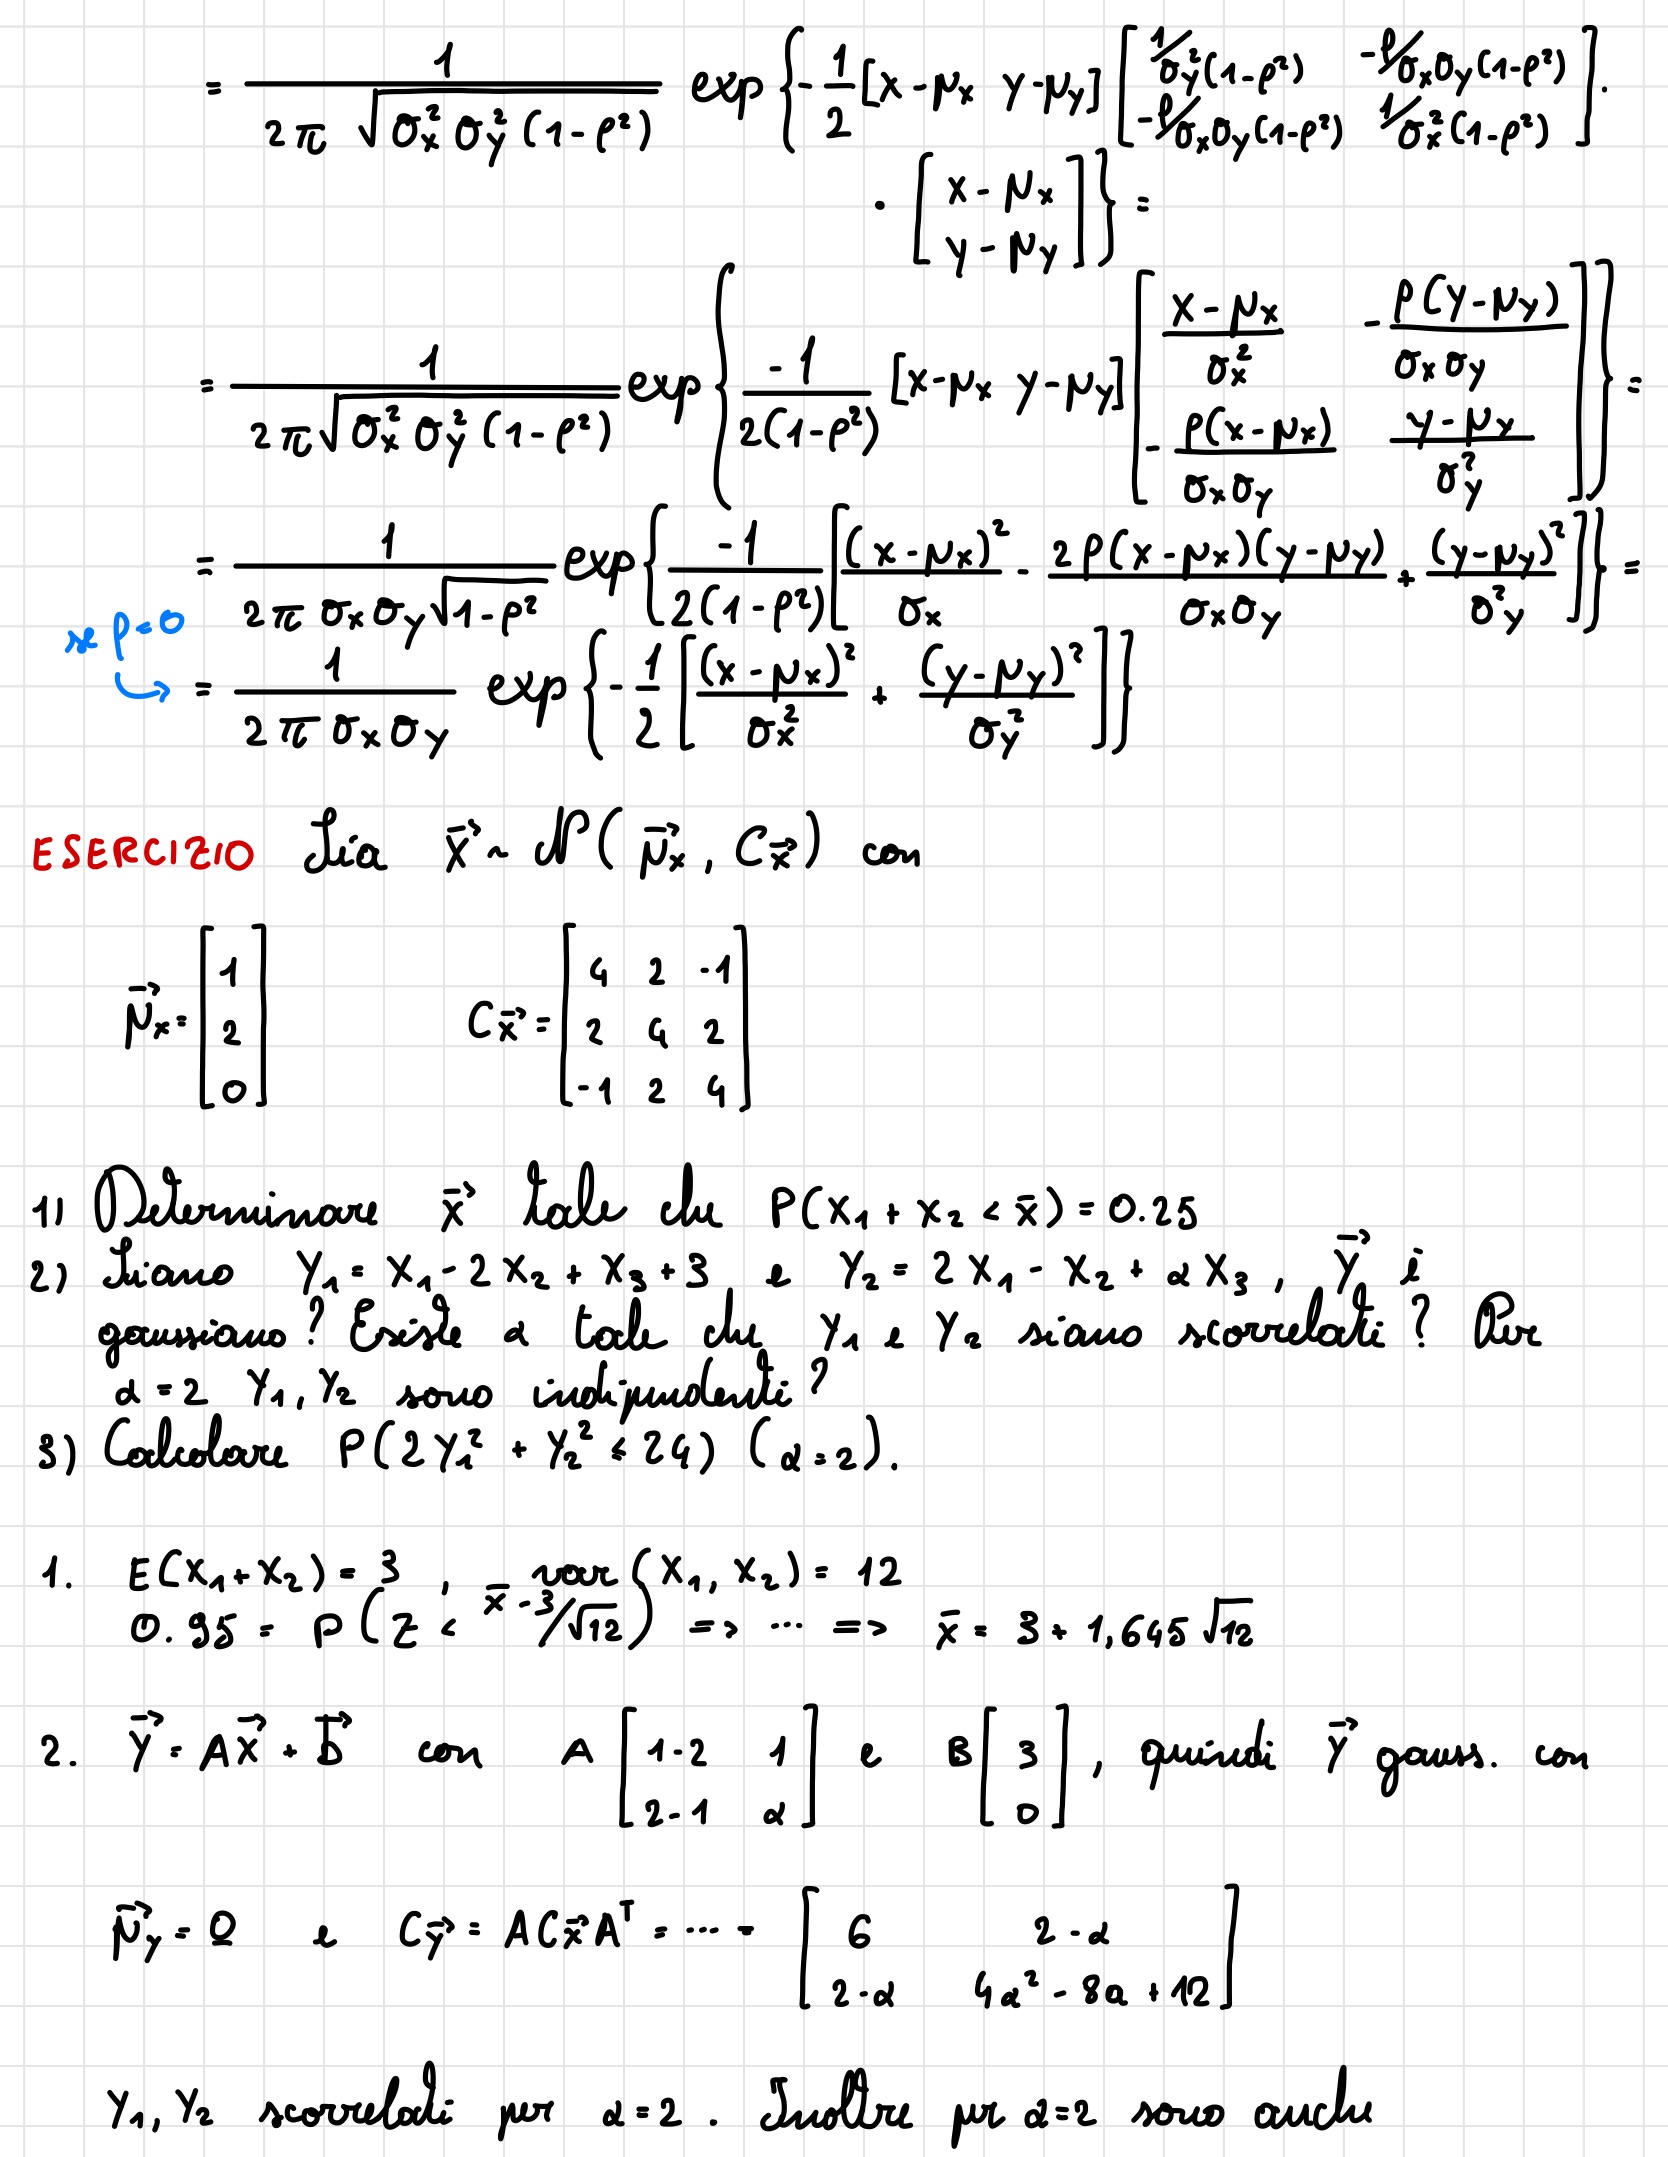 = 1 / (2π √(σx² σy² (1-ρ²))) exp { -1/2 [x-μx y-μy] [ 1/σy²(1-ρ²) -ρ/σxσy(1-ρ²) ; -ρ/σxσy(1-ρ²) 1/σx²(1-ρ²) ] ·
· [ x-μx ; y-μy ] } =
= 1 / (2π √(σx² σy² (1-ρ²))) exp { -1 / 2(1-ρ²) [x-μx y-μy] [ (x-μx)/σx² -ρ(y-μy)/σxσy ; -ρ(x-μx)/σxσy (y-μy)/σy² ] } =
= 1 / (2π σx σy √(1-ρ²)) exp { -1 / 2(1-ρ²) [ (x-μx)²/σx - 2ρ(x-μx)(y-μy)/σxσy + (y-μy)²/σ²y ] } =
se ρ=0
→ = 1 / (2π σx σy) exp { -1/2 [ (x-μx)²/σx² + (y-μy)²/σy² ] }
ESERCIZIO Sia X⃗ ~ N( μ⃗x , Cx⃗ ) con
μ⃗x = [ 1 ; 2 ; 0 ] Cx⃗ = [ 4 2 -1 ; 2 4 2 ; -1 2 4 ]
1) Determinare x̄⃗ tale che P(X₁ + X₂ < x̄) = 0.25
2) Siano Y₁ = X₁ - 2X₂ + X₃ + 3 e Y₂ = 2X₁ - X₂ + αX₃ , Y⃗ è
gaussiano? Esiste α tale che Y₁ e Y₂ siano scorrelati? Per
α=2 Y₁, Y₂ sono indipendenti?
3) Calcolare P(2Y₁² + Y₂² ≤ 24) (α=2).
1. E(X₁+X₂) = 3 , var(X₁, X₂) = 12
0.95 = P( Z < x̄-3/√12 ) => ... => x̄ = 3 + 1,645 √12
2. Y⃗ = AX⃗ + b⃗ con A [ 1-2 1 ; 2-1 α ] e B [ 3 ; 0 ] , quindi Y⃗ gauss. con
μ⃗y = 0 e Cy⃗ = ACx⃗Aᵀ = ... = [ 6 2-α ; 2-α 4α²-8α+12 ]
Y₁, Y₂ scorrelati per α=2 . Inoltre per α=2 sono anche